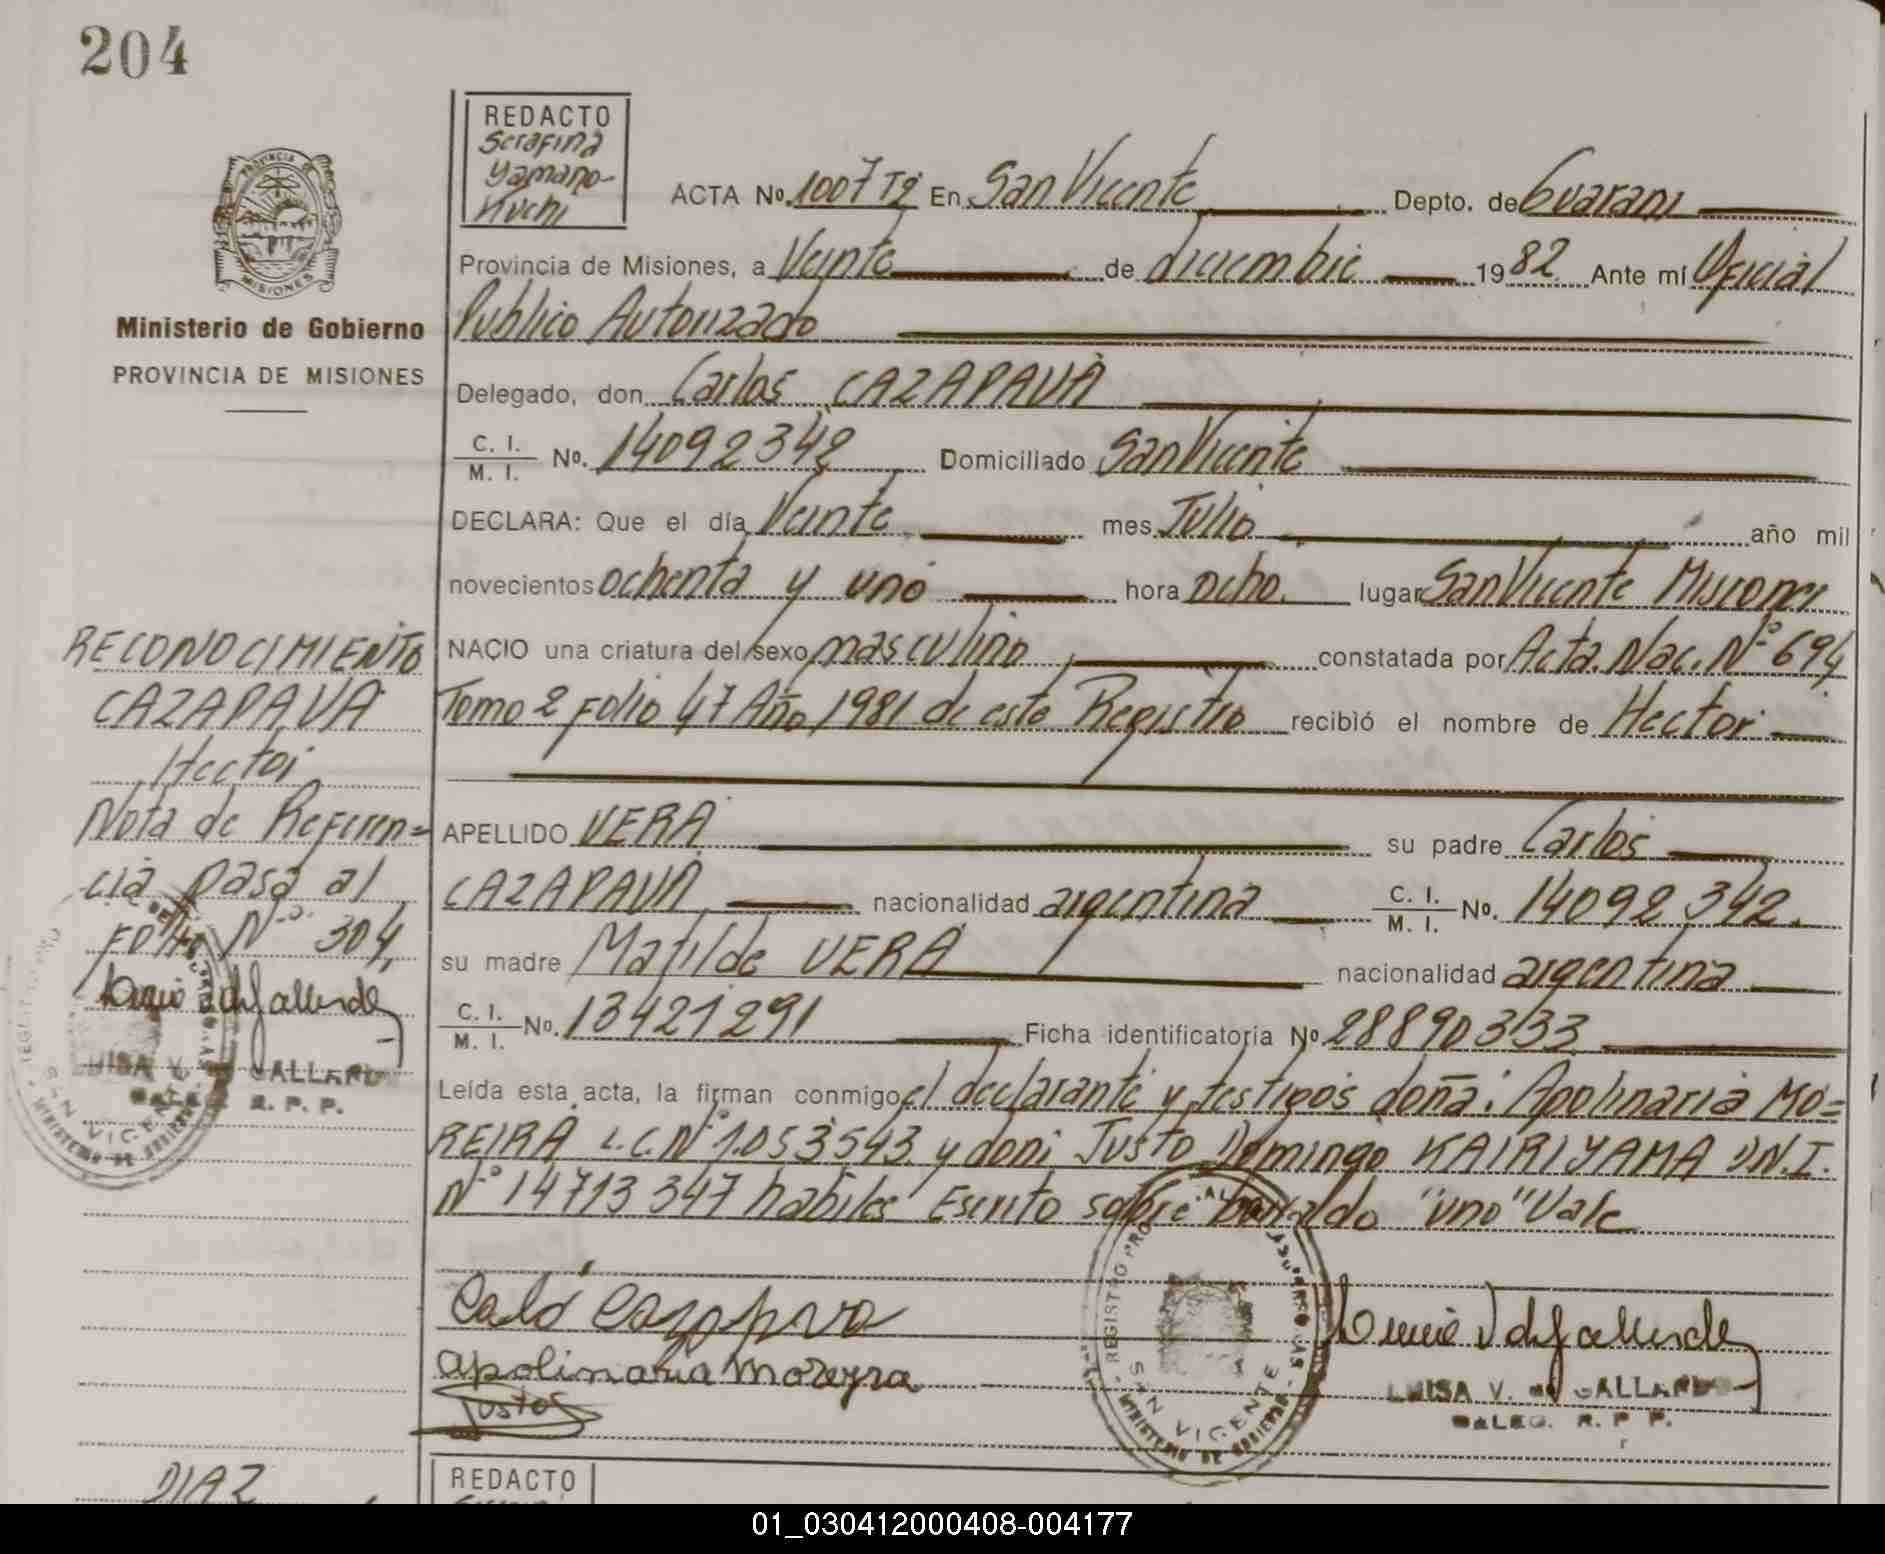 204
REDACTO
Serafina
Yamano-
Kuchi
ACTA No. 1007 T2 En San Vicente Depto. de Guarani
Provincia de Misiones, a Veinte de diciembre 1982 Ante mí Oficial
Publico Autorizado
Delegado, don Carlos CAZAPAVA
C. I. / M. I. No. 14092342 Domiciliado San Vicente
DECLARA: Que el día Veinte mes Julio año mil
novecientos ochenta y uno hora ocho. lugar San Vicente Misiones
NACIO una criatura del sexo masculino constatada por Acta Nac. Nº 694
Tomo 2 Folio 47 Año 1981 de este Registro recibió el nombre de Hector
APELLIDO VERA su padre Carlos
CAZAPAVA nacionalidad argentina C. I. / M. I. No. 14092342.
su madre Matilde VERA nacionalidad argentina
C. I. / M. I. No. 13421291 Ficha identificatoria No 28890333
Leída esta acta, la firman conmigo el declarante y testigos doña: Apolinaria MO=
REIRA L.C. Nº 1.053543 y don: Justo Domingo KAIRIYAMA D.N.I.
Nº 14713347 habiles Escrito sobre borrado "uno" Vale
Apolinaria Moreyra
Justo
REGISTRO PRO
SAN VICENTE
MINISTERIO DE GOBIERNO
LUISA V. de GALLARDO
DELEG. R. P. P.
PROVINCIA DE
MISIONES
Ministerio de Gobierno
PROVINCIA DE MISIONES
RECONOCIMIENTO
CAZAPAVA
Hector
Nota de Referen=
cia pasa al
Folio Nº 304,
LUISA V. GALLARDO
DELEG. R. P. P.
SAN VICENTE
MINISTERIO DE GOBIERNO
DIAZ
REDACTO
01_030412000408-004177